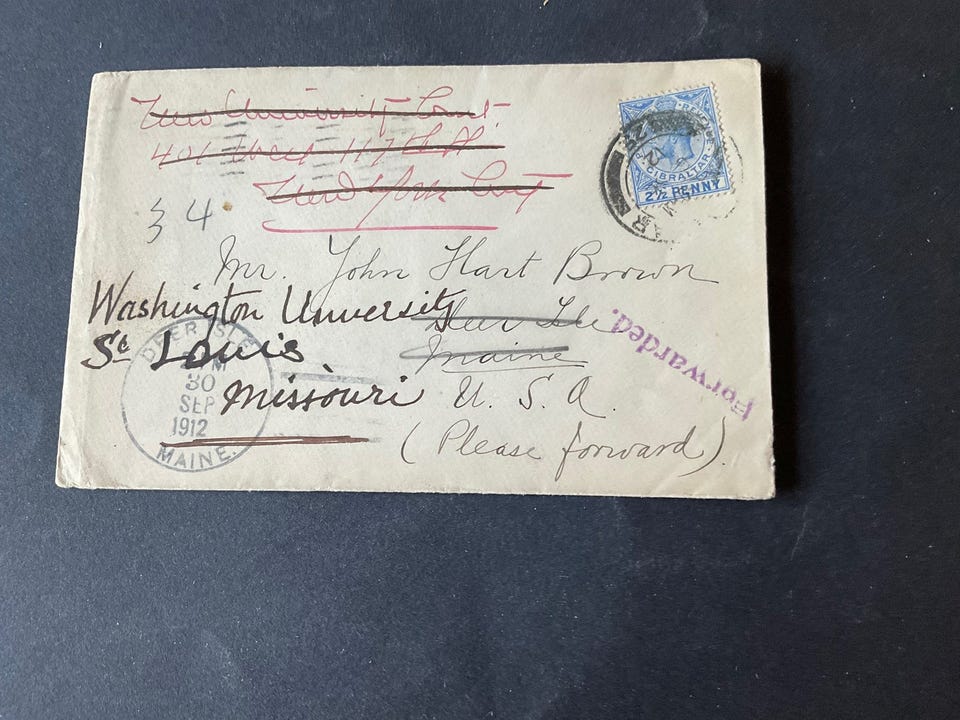 New University Court
401 West 117th St
New York City
3 4
Mr. John Hart Brown
Washington University
Deer Isle
St Louis
Maine
Missouri
U. S. A.
(Please forward).
Forwarded.
DEER ISLE
M
30
SEP
1912
MAINE.
GIBRALTAR
2½ PENNY
12
AR